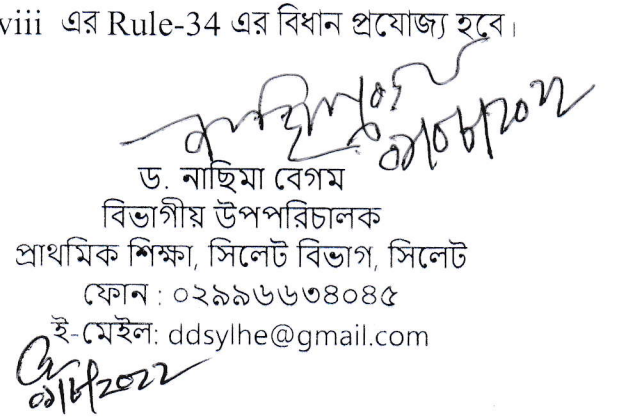 viii এর Rule-34 এর বিধান প্রযোজ্য হবে।
ড. নাছিমা বেগম
বিভাগীয় উপপরিচালক
প্রাথমিক শিক্ষা, সিলেট বিভাগ, সিলেট
ফোন : ০২৯৯৬৬৩৪০৪৫
ই-মেইল: ddsylhe@gmail.com